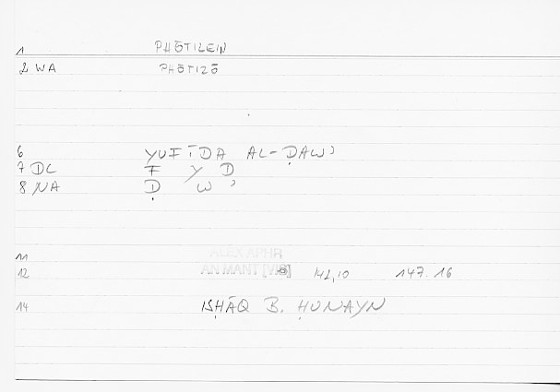 1 PHŌTILEIN
2 WA PHŌTIZŌ
6 YUFĪDA AL-ḌAWʾ
7 DL F Y D
8 NA Ḍ W ʾ
11 ALEX APHR
12 AN MANT [Vis] 142,10 147.16
14 ISḤĀQ B. ḤUNAYN